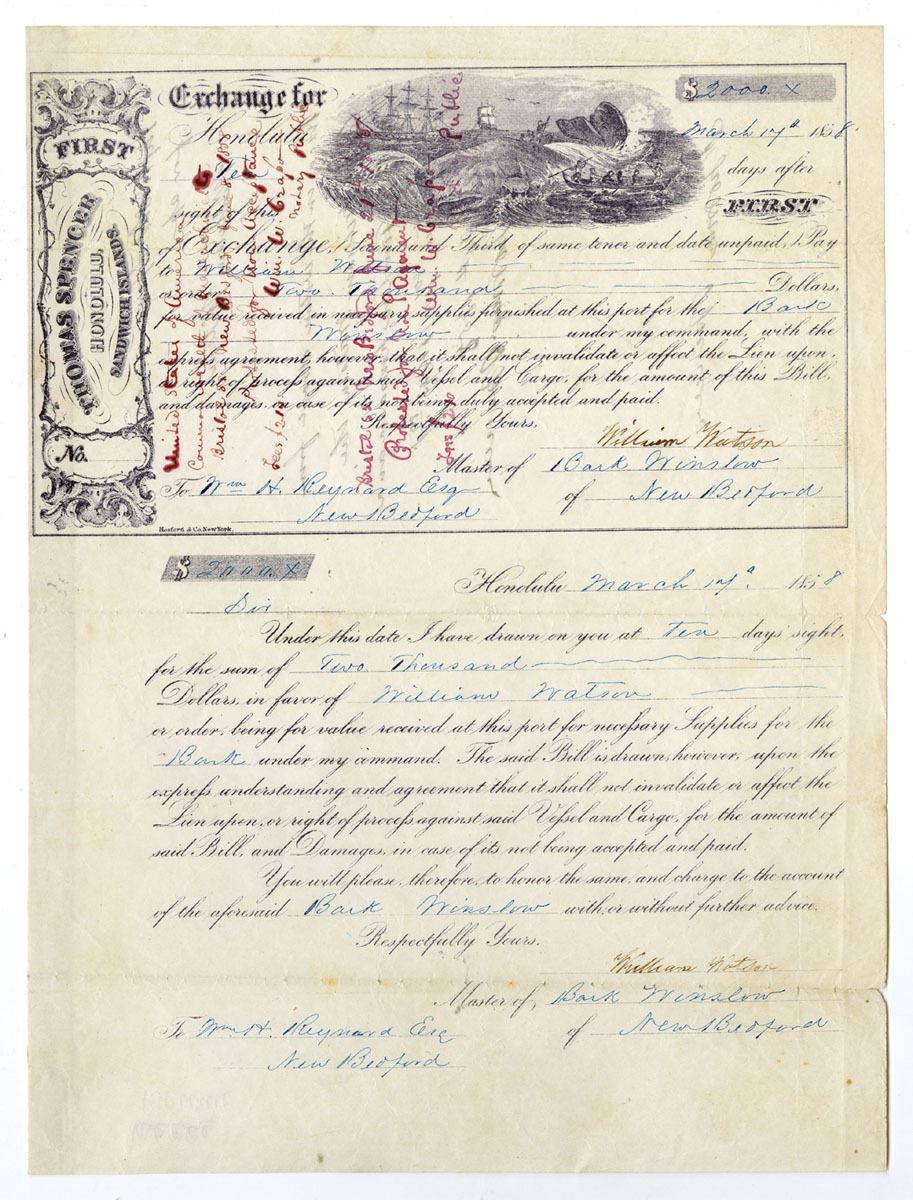 Exchange for
$ 2000. x
Honolulu March 17th 1858
Ten days after
sight of this FIRST
of Exchange, (Second and Third, of same tenor and date unpaid,) Pay
to William Watson
or order Two Thousand Dollars,
for value received in necessary supplies furnished at this port for the Bark
Winslow under my command, with the
express agreement, however, that it shall not invalidate or affect the Lien upon,
or right of process against said Vessel and Cargo, for the amount of this Bill,
and damages, in case of its not being duly accepted and paid.
Respectfully Yours,
William Watson
Master of Bark Winslow
To Wm H. Reynard Esq of New Bedford
New Bedford
FIRST
THOMAS SPENCER
HONOLULU,
SANDWICH ISLANDS
No.
Hosford & Co. New York.
United States of America
Commonwealth of
Bristol New Bedford
Protested for non Acceptance
Fees /2
Wm. W. Crapo
Notary Public
Bristol ss New Bedford June 21
Protested for non Payment
Wm W Crapo Not Public
Fees
$ 2000. x
Honolulu March 17th 1858
Sir
Under this date I have drawn on you at Ten days' sight,
for the sum of Two Thousand
Dollars, in favor of William Watson
or order, being for value received at this port for necessary Supplies for the
Bark under my command. The said Bill is drawn, however, upon the
express understanding and agreement that it shall not invalidate or affect the
Lien upon, or right of process against said Vessel and Cargo, for the amount of
said Bill, and Damages, in case of its not being accepted and paid.
You will please, therefore, to honor the same, and charge to the account
of the aforesaid Bark Winslow with, or without further advice.
Respectfully Yours.
William Watson
Master of Bark Winslow
To Wm. H. Reynard Esq of New Bedford
New Bedford